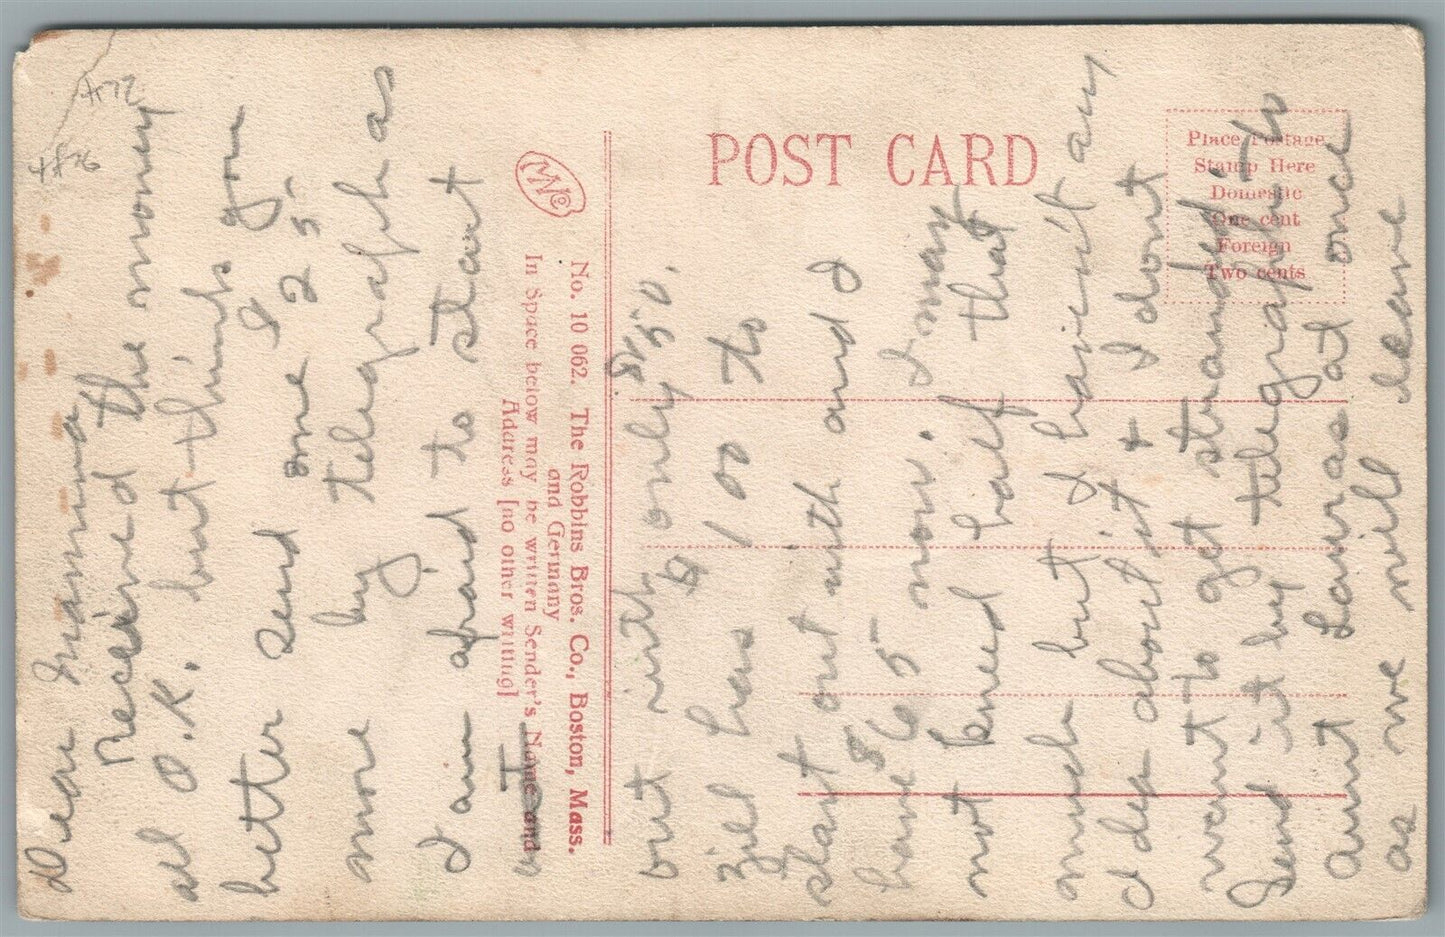 #72
#76
Dear Mamma
Received the money
all O.K. but think you
better send me I
one 25
more by telegraph as
I am afraid to start
out with only $150.
Ziel has $100 to
start out with and I
have $65 now. I may
not need half that
much but I hasn't any
Idea about it & I dont
want to get stranded. -
Send it by telegraph to
aunt Lauras at once
as we will leave
POST CARD
Place Postage
Stamp Here
Domestic
One cent
Foreign
Two cents
No. 10 062. The Robbins Bros. Co., Boston, Mass.
and Germany
In Space below may be written Sender's Name and
Address [no other writing]